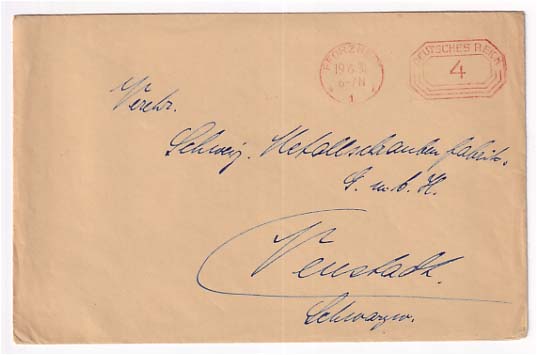 PFORZHEIM
19.6.3
6-7N
1
DEUTSCHES REICH
4
Verehr.
Schweiz. Metallschrauben fabrik.
G. m. b. H.
Neustadt.
Schwarzw.